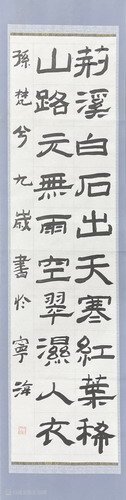 荊溪白石出天寒紅葉稀
山路元無雨空翠濕人衣
孫楚兮九歲書於寧海